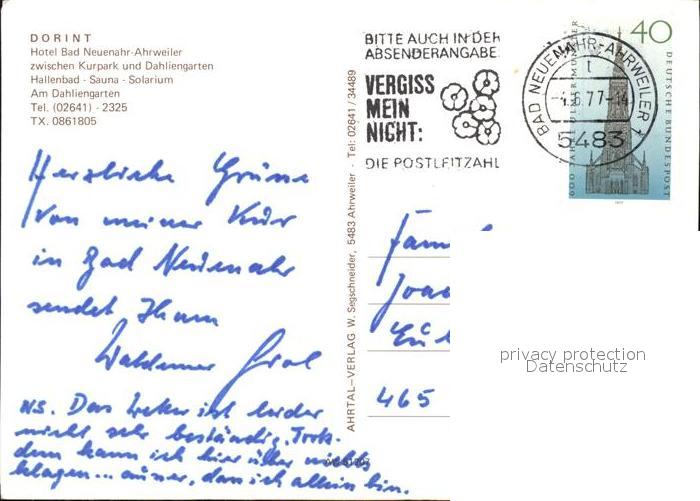 DORINT
Hotel Bad Neuenahr-Ahrweiler
zwischen Kurpark und Dahliengarten
Hallenbad - Sauna - Solarium
Am Dahliengarten
Tel. (02641) - 2325
TX. 0861805
BITTE AUCH IN DER
ABSENDERANGABE
VERGISS
MEIN
NICHT:
DIE POSTLEITZAHL
BAD NEUENAHR-AHRWEILER 1
t
6.77-14
5483
40
DEUTSCHE BUNDESPOST
600 JAHRE ULMER MÜNSTER
1977
Herzliche Grüsse
von meiner Kur
in Bad Neuenahr
sendet Ihnen
Waldemar
NS. Das Wetter ist leider
nicht sehr beständig. Trotz-
dem kann ich hier über nichts
klagen... ausser, dass ich allein bin.
AHRTAL-VERLAG W. Segschneider, 5483 Ahrweiler - Tel: 02641 / 34489
Fam
Joa
465
privacy protection
Datenschutz